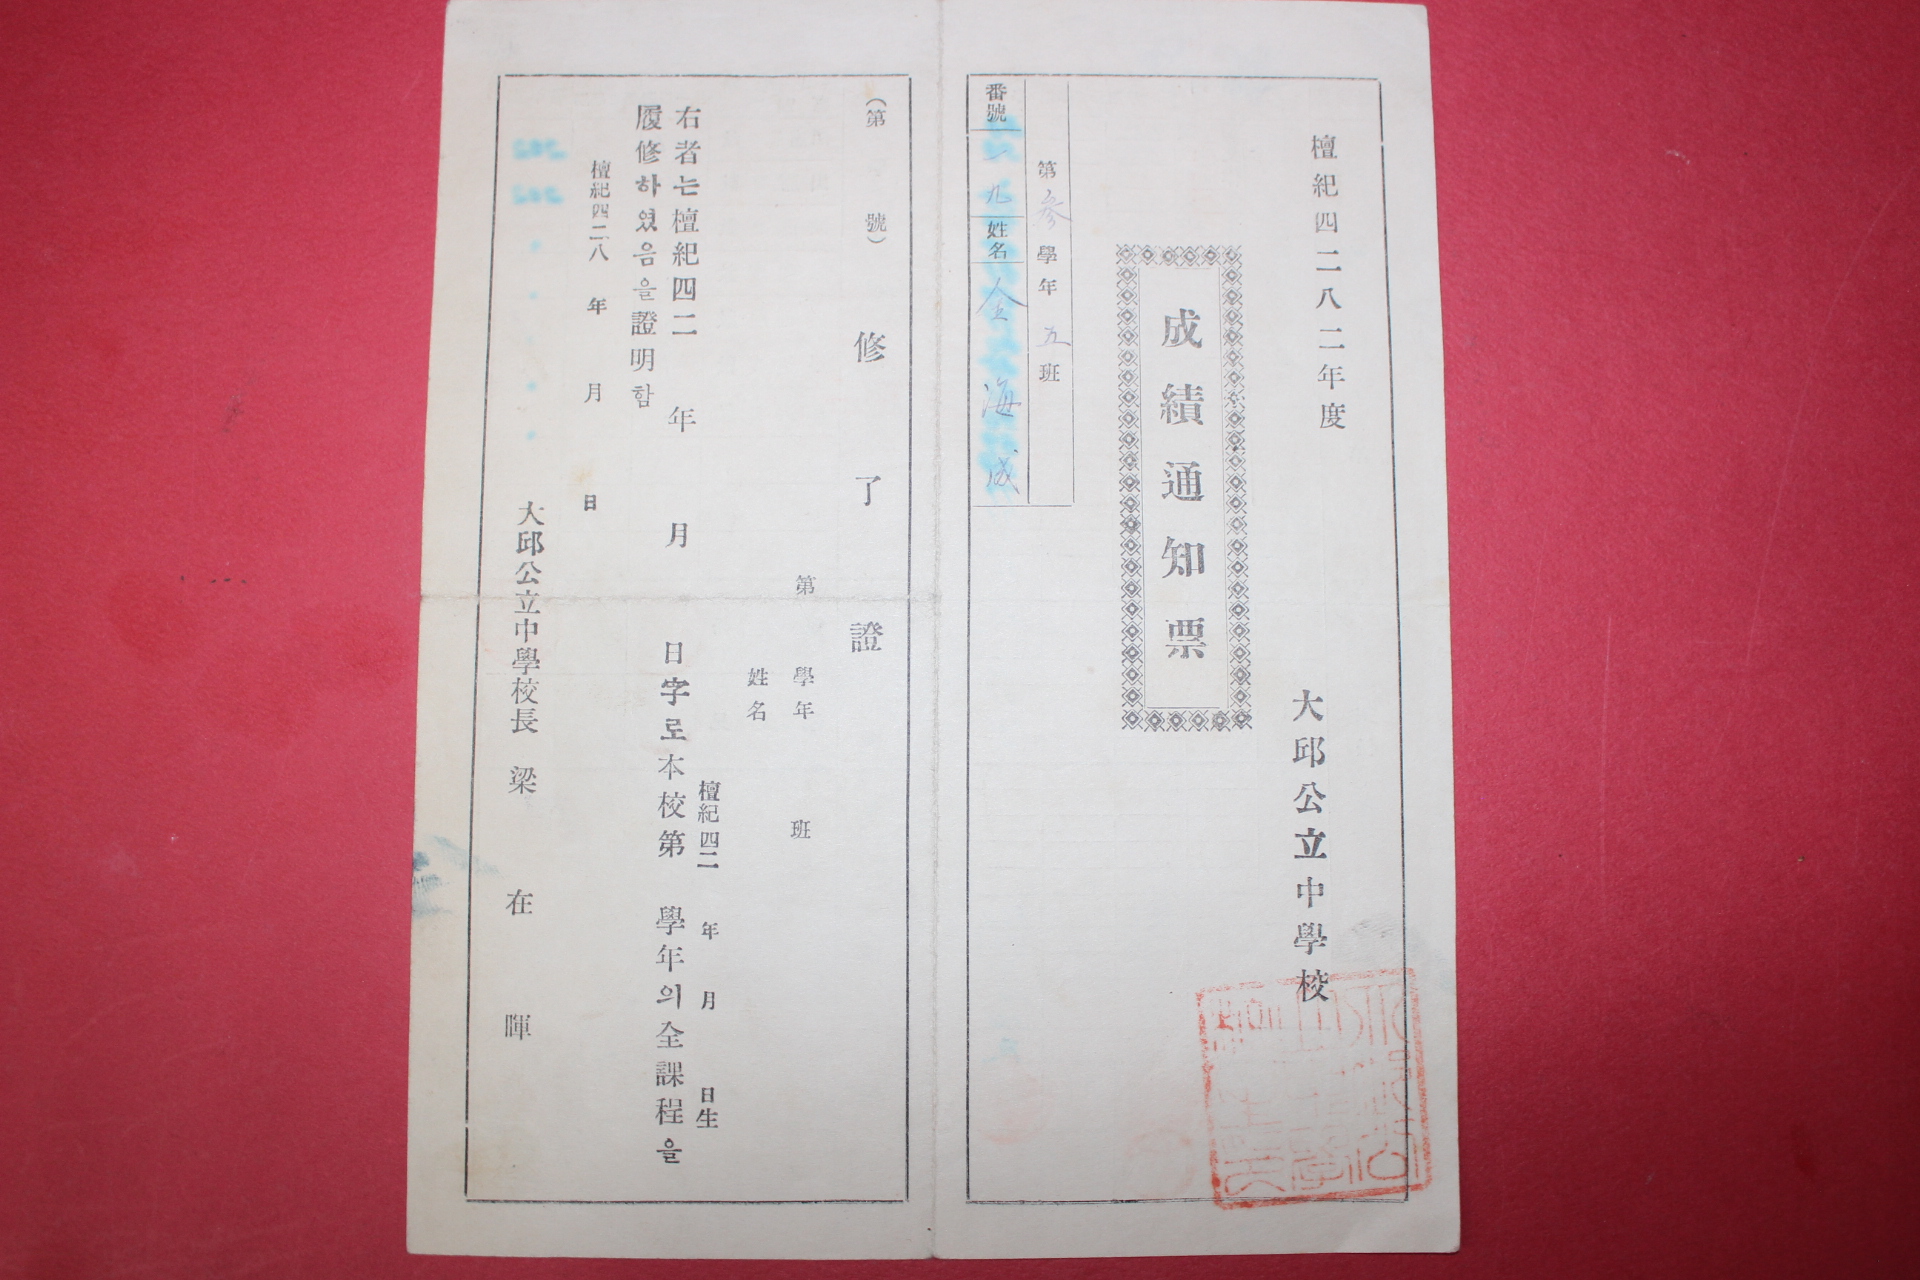 檀紀四二八二年度
大邱公立中學校
成績通知票
第参學年 五班
番號 一九 姓名 全海成
(第 號)
修了證
第 學年 班
姓名
檀紀四二 年 月 日生
右者는檀紀四二 年 月 日字로本校第 學年의全課程을
履修하였음을證明함
檀紀四二八 年 月 日
大邱公立中學校長 梁在暉